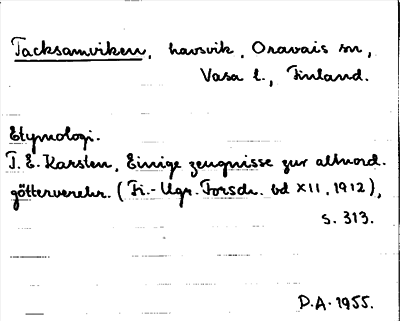 Tacksamviken, havsvik, Oravais sn,
Vasa l., Finland.
Etymologi.
T. E. Karsten, Einige zeugnisse zur altnord.
götterverehr. (Fi.-Ugr. Forsch. bd XII, 1912),
s. 313.
D.A. 1955.